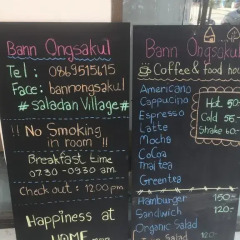 Bann Ongsakul
Tel : 0869515415
Face: bannongsakul
# Saladan Village #
!! No Smoking
in room !!
Breakfast time
07.30 - 09.30 am.
Check out : 12.00 pm.
Happiness at
HOME
Bann Ongsakul
Coffee & food
Americano
Cappucino
Espresso
Latte
Mocha
CoCoa
Thai tea
Greentea
Hot 50
Cold 55.-
Shake 60.-
Hamburger 150.-
Sandwich 120.-
Organic Salad
Salad 120